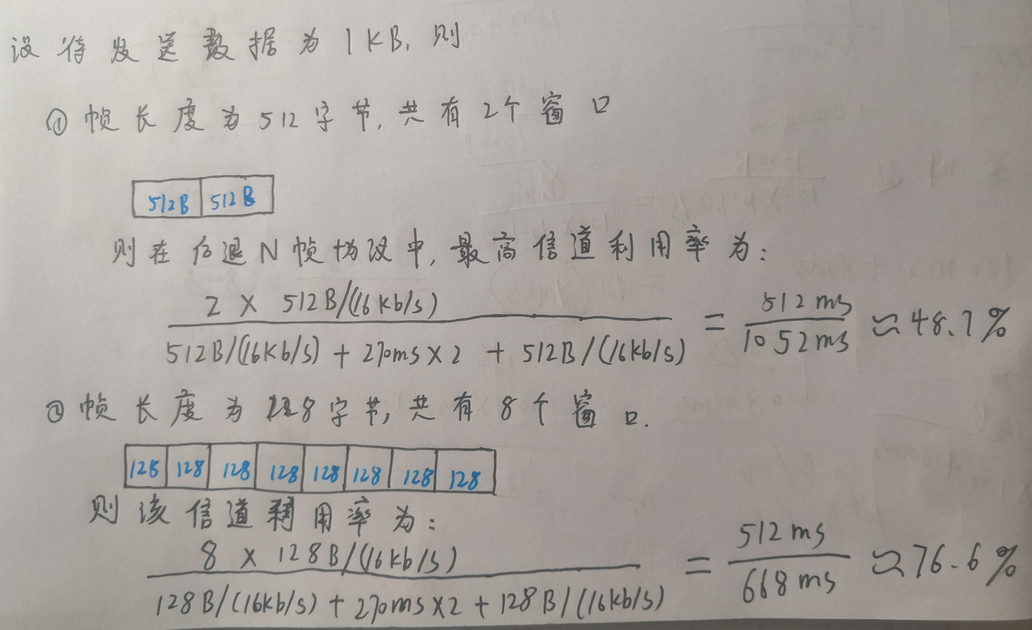 设待发送数据为1KB,则
① 帧长度为512字节,共有2个窗口
512B 512B
则在后退N帧协议中,最高信道利用率为:
2 × 512B/(16kb/s)
512B/(16kb/s) + 270ms×2 + 512B/(16kb/s)
= 512ms / 1052ms ≈ 48.7%
② 帧长度为128字节,共有8个窗口.
128 128 128 128 128 128 128 128
则该信道利用率为:
8 × 128B/(16kb/s)
128B/(16kb/s) + 270ms×2 + 128B/(16kb/s)
= 512ms / 668ms ≈ 76.6%